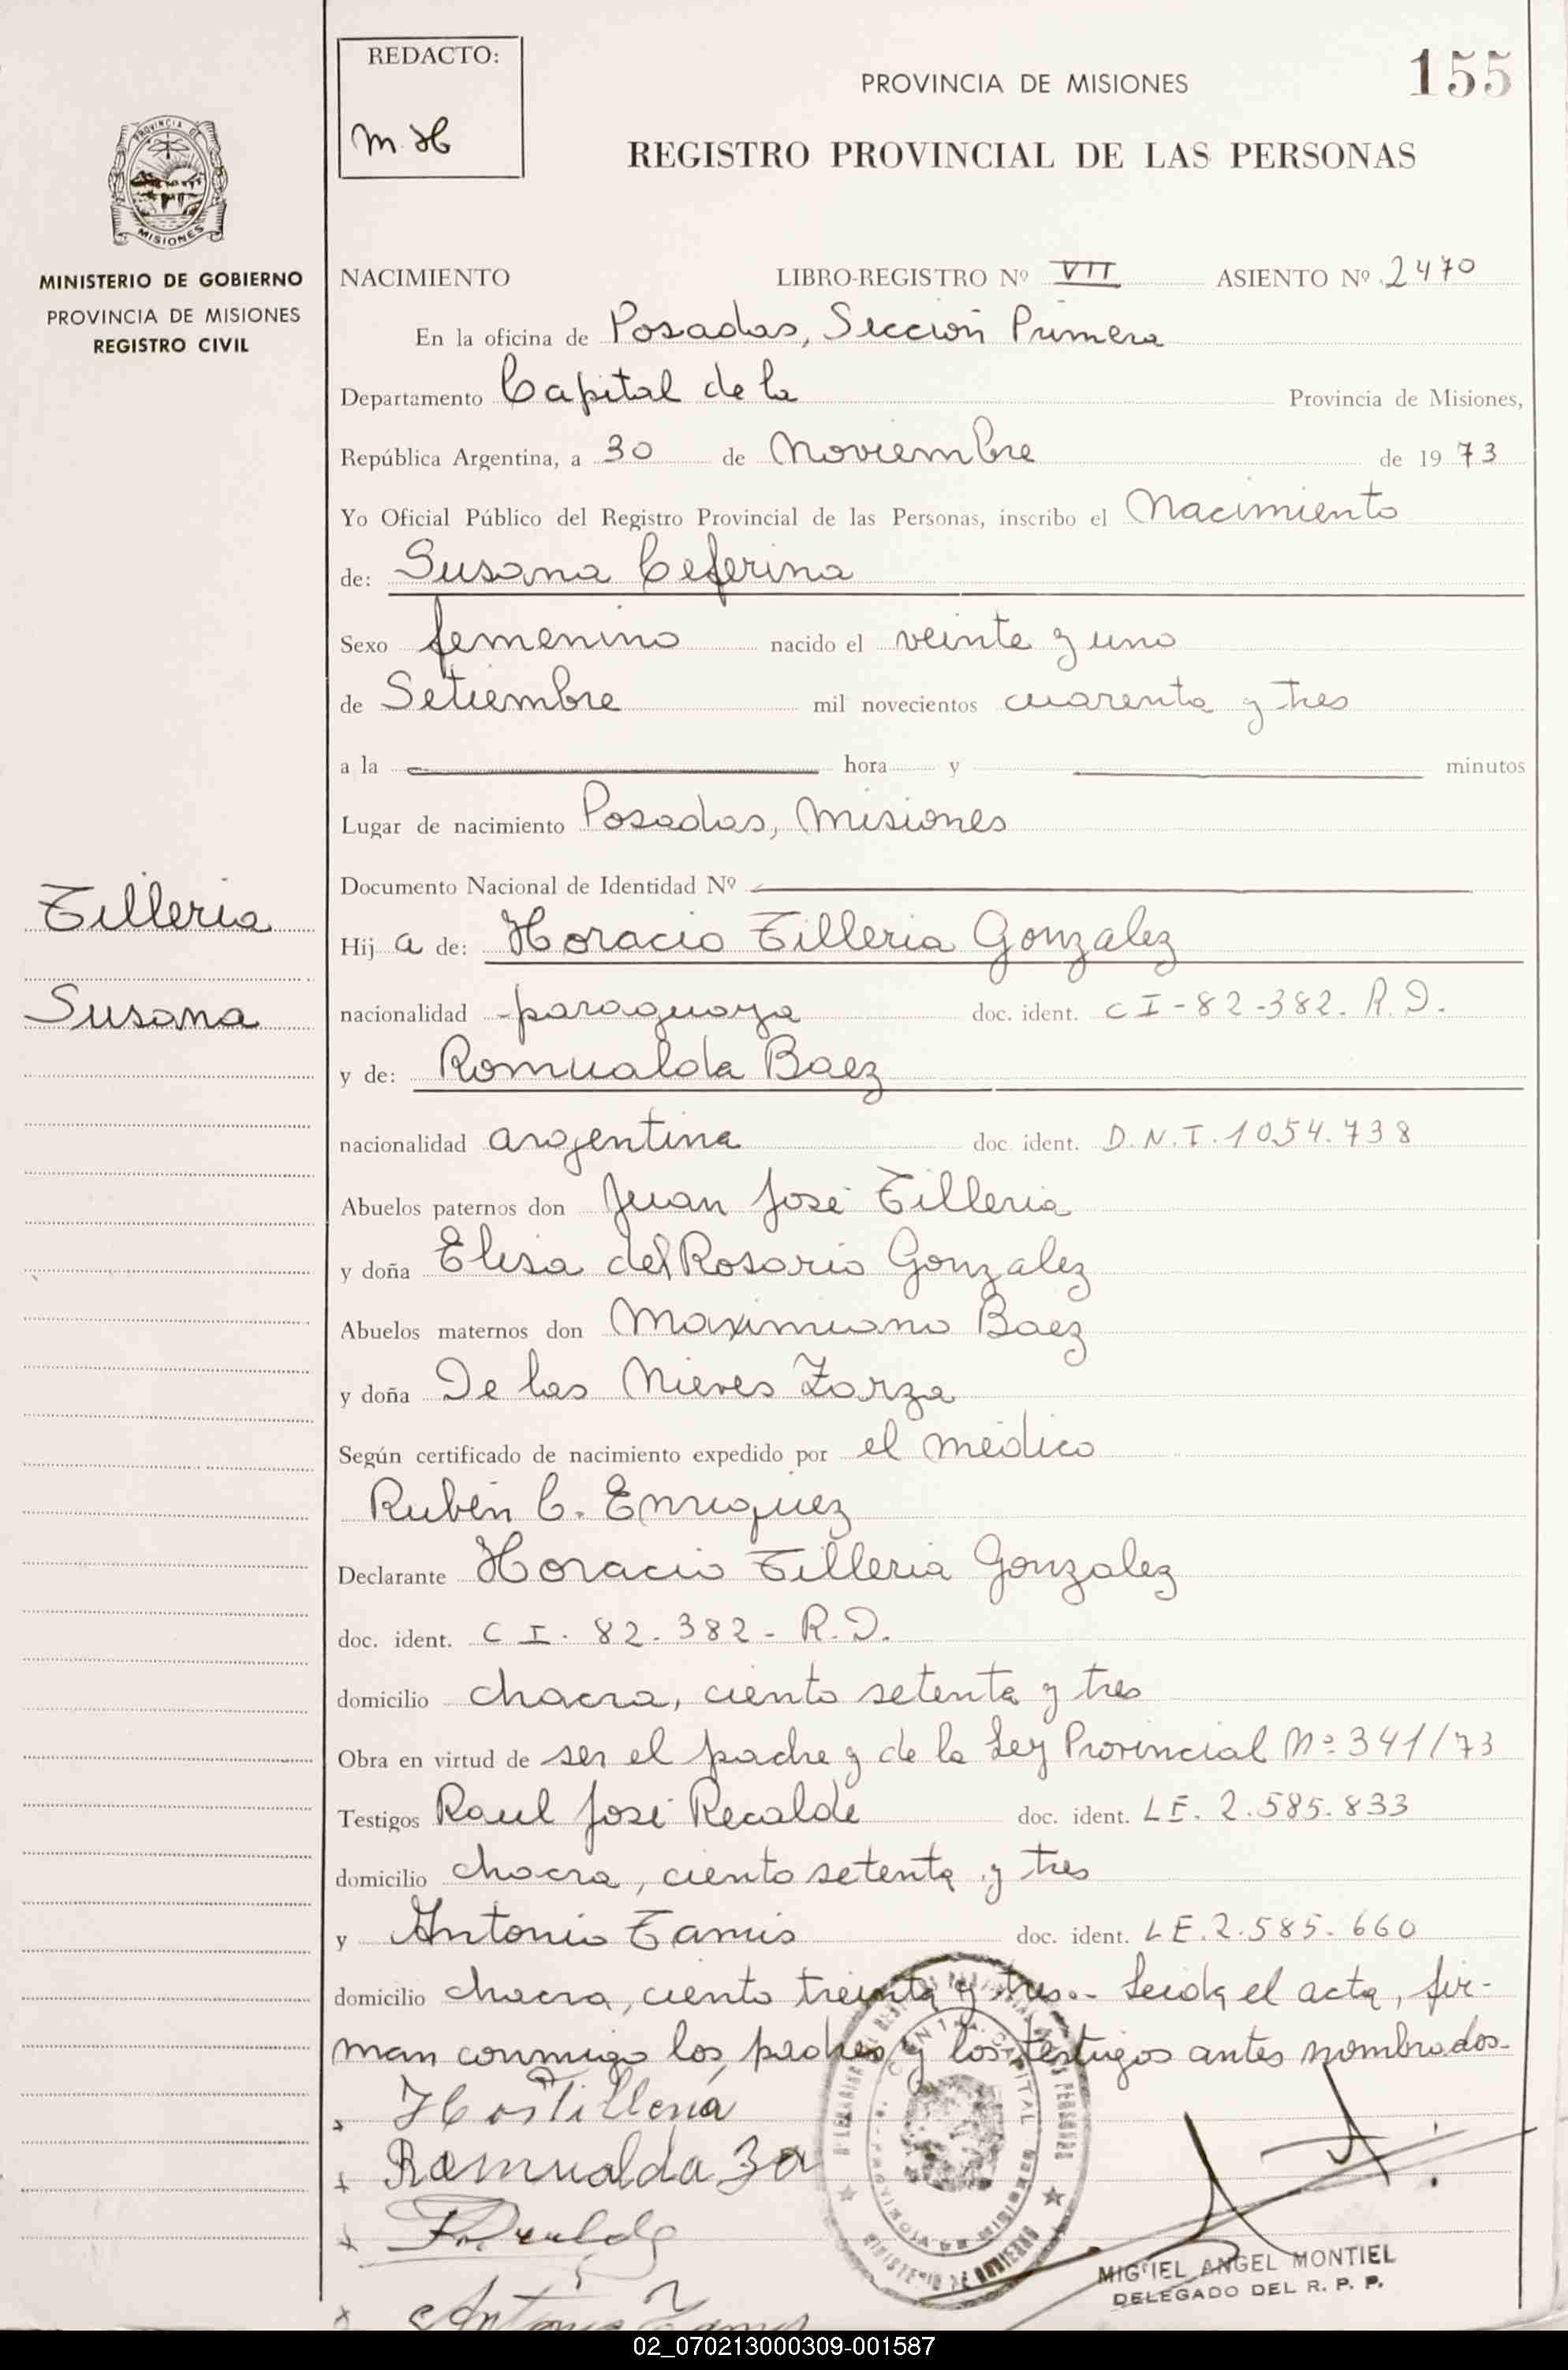 REDACTO:
M. H
PROVINCIA DE MISIONES
155
REGISTRO PROVINCIAL DE LAS PERSONAS
PROVINCIA DE
MISIONES
MINISTERIO DE GOBIERNO
PROVINCIA DE MISIONES
REGISTRO CIVIL
NACIMIENTO LIBRO-REGISTRO Nº VII ASIENTO Nº 2470
En la oficina de Posadas, Sección Primera
Departamento Capital de la Provincia de Misiones,
República Argentina, a 30 de Noviembre de 1973
Yo Oficial Público del Registro Provincial de las Personas, inscribo el Nacimiento
de: Susana Ceferina
Sexo femenino nacido el veinte y uno
de Setiembre mil novecientos cuarenta y tres
a la hora y minutos
Lugar de nacimiento Posadas, Misiones
Documento Nacional de Identidad Nº
Tilleria
Susana
Hija de: Horacio Tilleria Gonzalez
nacionalidad paraguaya doc. ident. C I-82-382. R.D.
y de: Romualda Baez
nacionalidad argentina doc. ident. D.N.I. 1054.738
Abuelos paternos don Juan José Tilleria
y doña Elisa del Rosario Gonzalez
Abuelos maternos don Maximiano Baez
y doña De las Nieves Zarza
Según certificado de nacimiento expedido por el médico
Rubén C. Enriquez
Declarante Horacio Tilleria Gonzalez
doc. ident. C I. 82.382 - R.D.
domicilio chacra, ciento setenta y tres
Obra en virtud de ser el padre y de la Ley Provincial Nº 341/73
Testigos Raul José Recalde doc. ident. LE. 2.585.833
domicilio chacra, ciento setenta y tres
y Antonio Tamis doc. ident. LE. 2.585.660
domicilio chacra, ciento treinta y tres.- Leida el acta, fir-
man conmigo los padres y los testigos antes nombrados-
Romualda
MIGUEL ANGEL MONTIEL
DELEGADO DEL R. P. P.
MINISTERIO DE GOBIERNO
Antonio Tamis
02_070213000309-001587